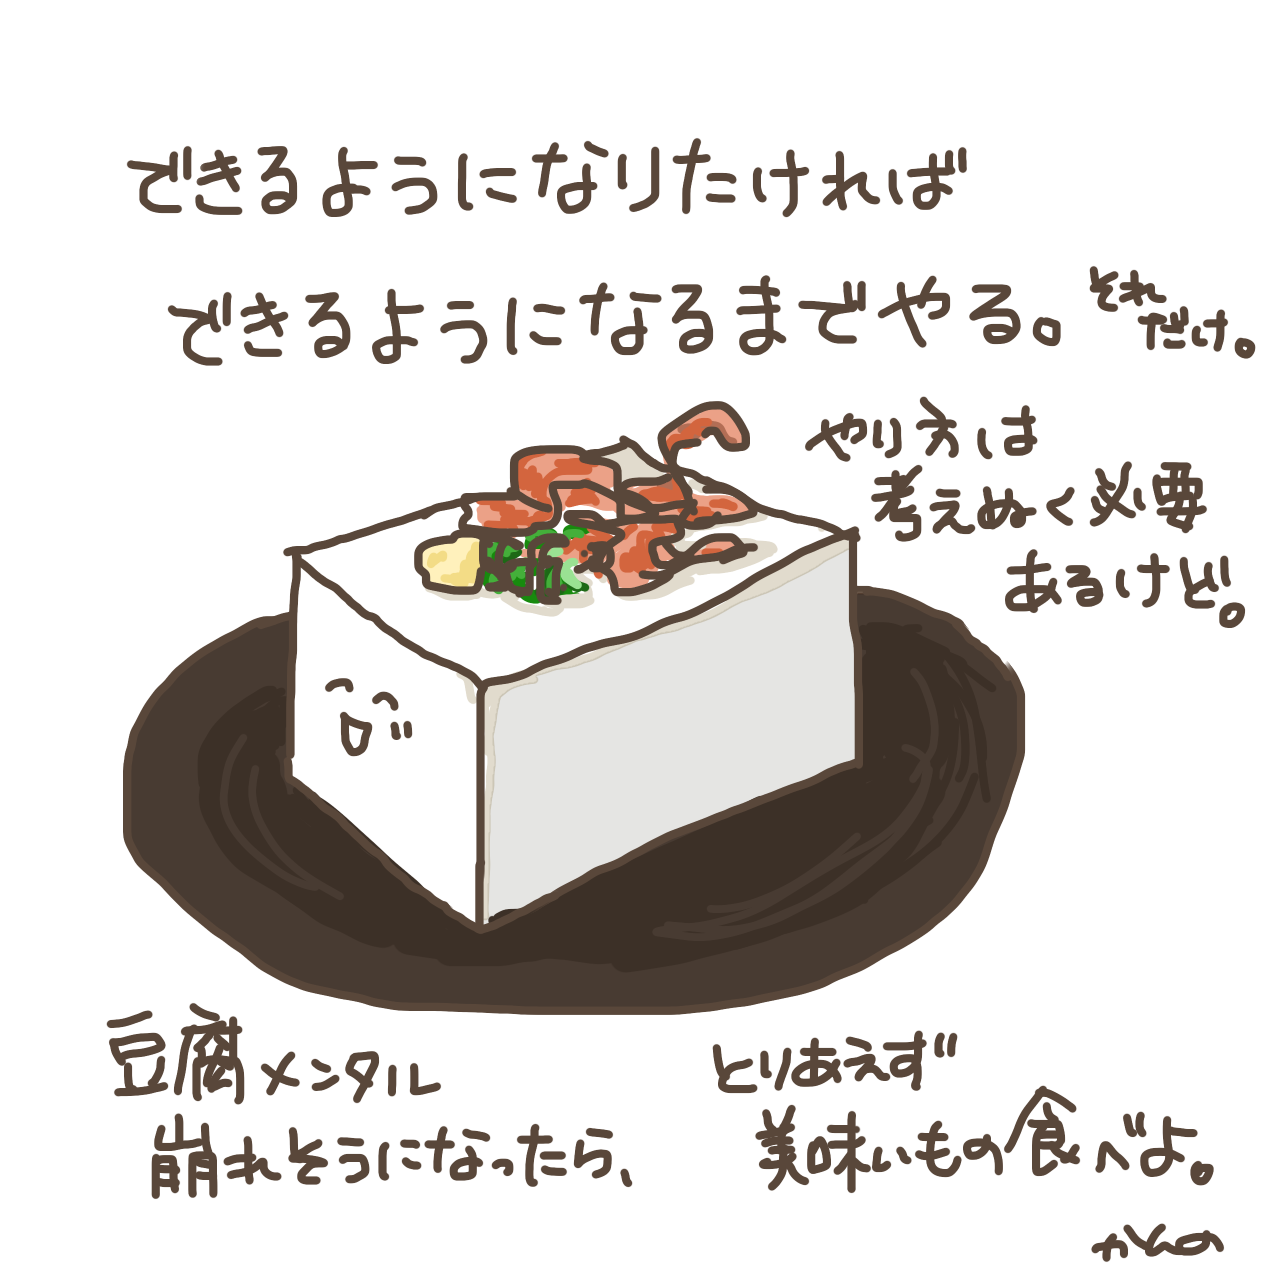 できるようになりたければ
できるようになるまでやる。
それ
だけ。
やり方は
考えぬく必要
あるけど。
豆腐メンタル
崩れそうになったら、
とりあえず
美味いもの食べよ。
かんの